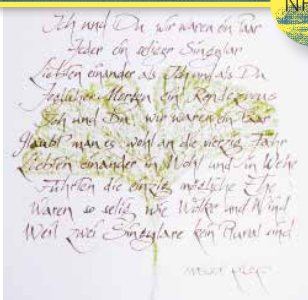 NE
Ich und Du wir waren ein Paar
Jeder ein seliger Singular
Liebten einander als Ich und als Du
Jeglicher Morgen ein Rendezvous
Ich und Du wir waren ein Paar
Glaubt man es wohl an die vierzig Jahr
Liebten einander in Wohl und in Wehe
Führten die einzig mögliche Ehe
Waren so selig wie Wolke und Wind
Weil zwei Singulare kein Plural sind